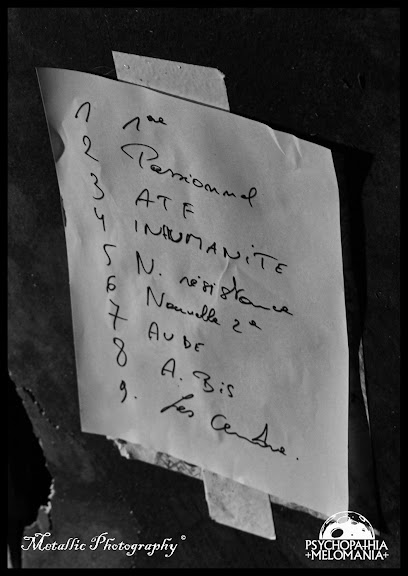 1 1ere
2 Passionnel
3 ATF
4 INHUMANITE
5 N. résistance
6 Nouvelle 2e
7 AUDE
8 A. Bis
9. Les Cendres.
Metallic Photography©
PSYCHOPATHIA
+MELOMANIA+